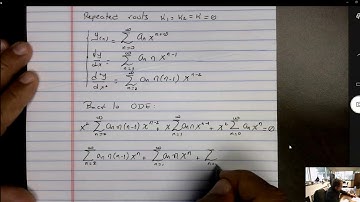 Repeated roots K₁ = K₂ = K = 0
y(x) = ∑_{n=0}^{∞} aₙ x^{n+0}
dy/dx = ∑_{n=1}^{∞} aₙ n x^{n-1}
d²y/dx² = ∑_{n=2}^{∞} aₙ n(n-1) x^{n-2}
Back to ODE:
x² ∑_{n=2}^{∞} aₙ n(n-1) x^{n-2} + x ∑_{n=1}^{∞} aₙ n x^{n-1} + x² ∑_{n=0}^{∞} aₙ x^n = 0
∑_{n=2}^{∞} aₙ n(n-1) x^n + ∑_{n=1}^{∞} aₙ n x^n + ∑